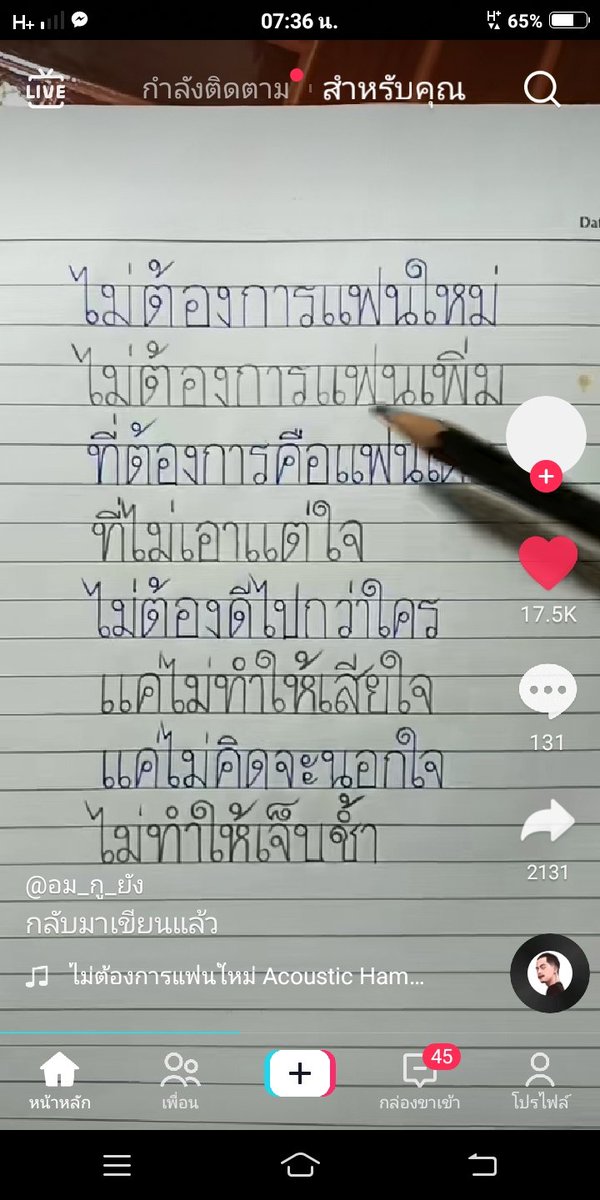 H+
07:36 น.
H+ 65%
LIVE
กำลังติดตาม
สำหรับคุณ
Dat
ไม่ต้องการแฟนใหม่
ไม่ต้องการแฟนเพิ่ม
ที่ต้องการคือแฟน
ที่ไม่เอาแต่ใจ
ไม่ต้องดีไปกว่าใคร
แค่ไม่ทำให้เสียใจ
แค่ไม่คิดจะนอกใจ
ไม่ทำให้เจ็บช้ำ
17.5K
131
2131
@อม_กู_ยัง
กลับมาเขียนแล้ว
ไม่ต้องการแฟนใหม่ Acoustic Ham...
45
หน้าหลัก
เพื่อน
กล่องขาเข้า
โปรไฟล์